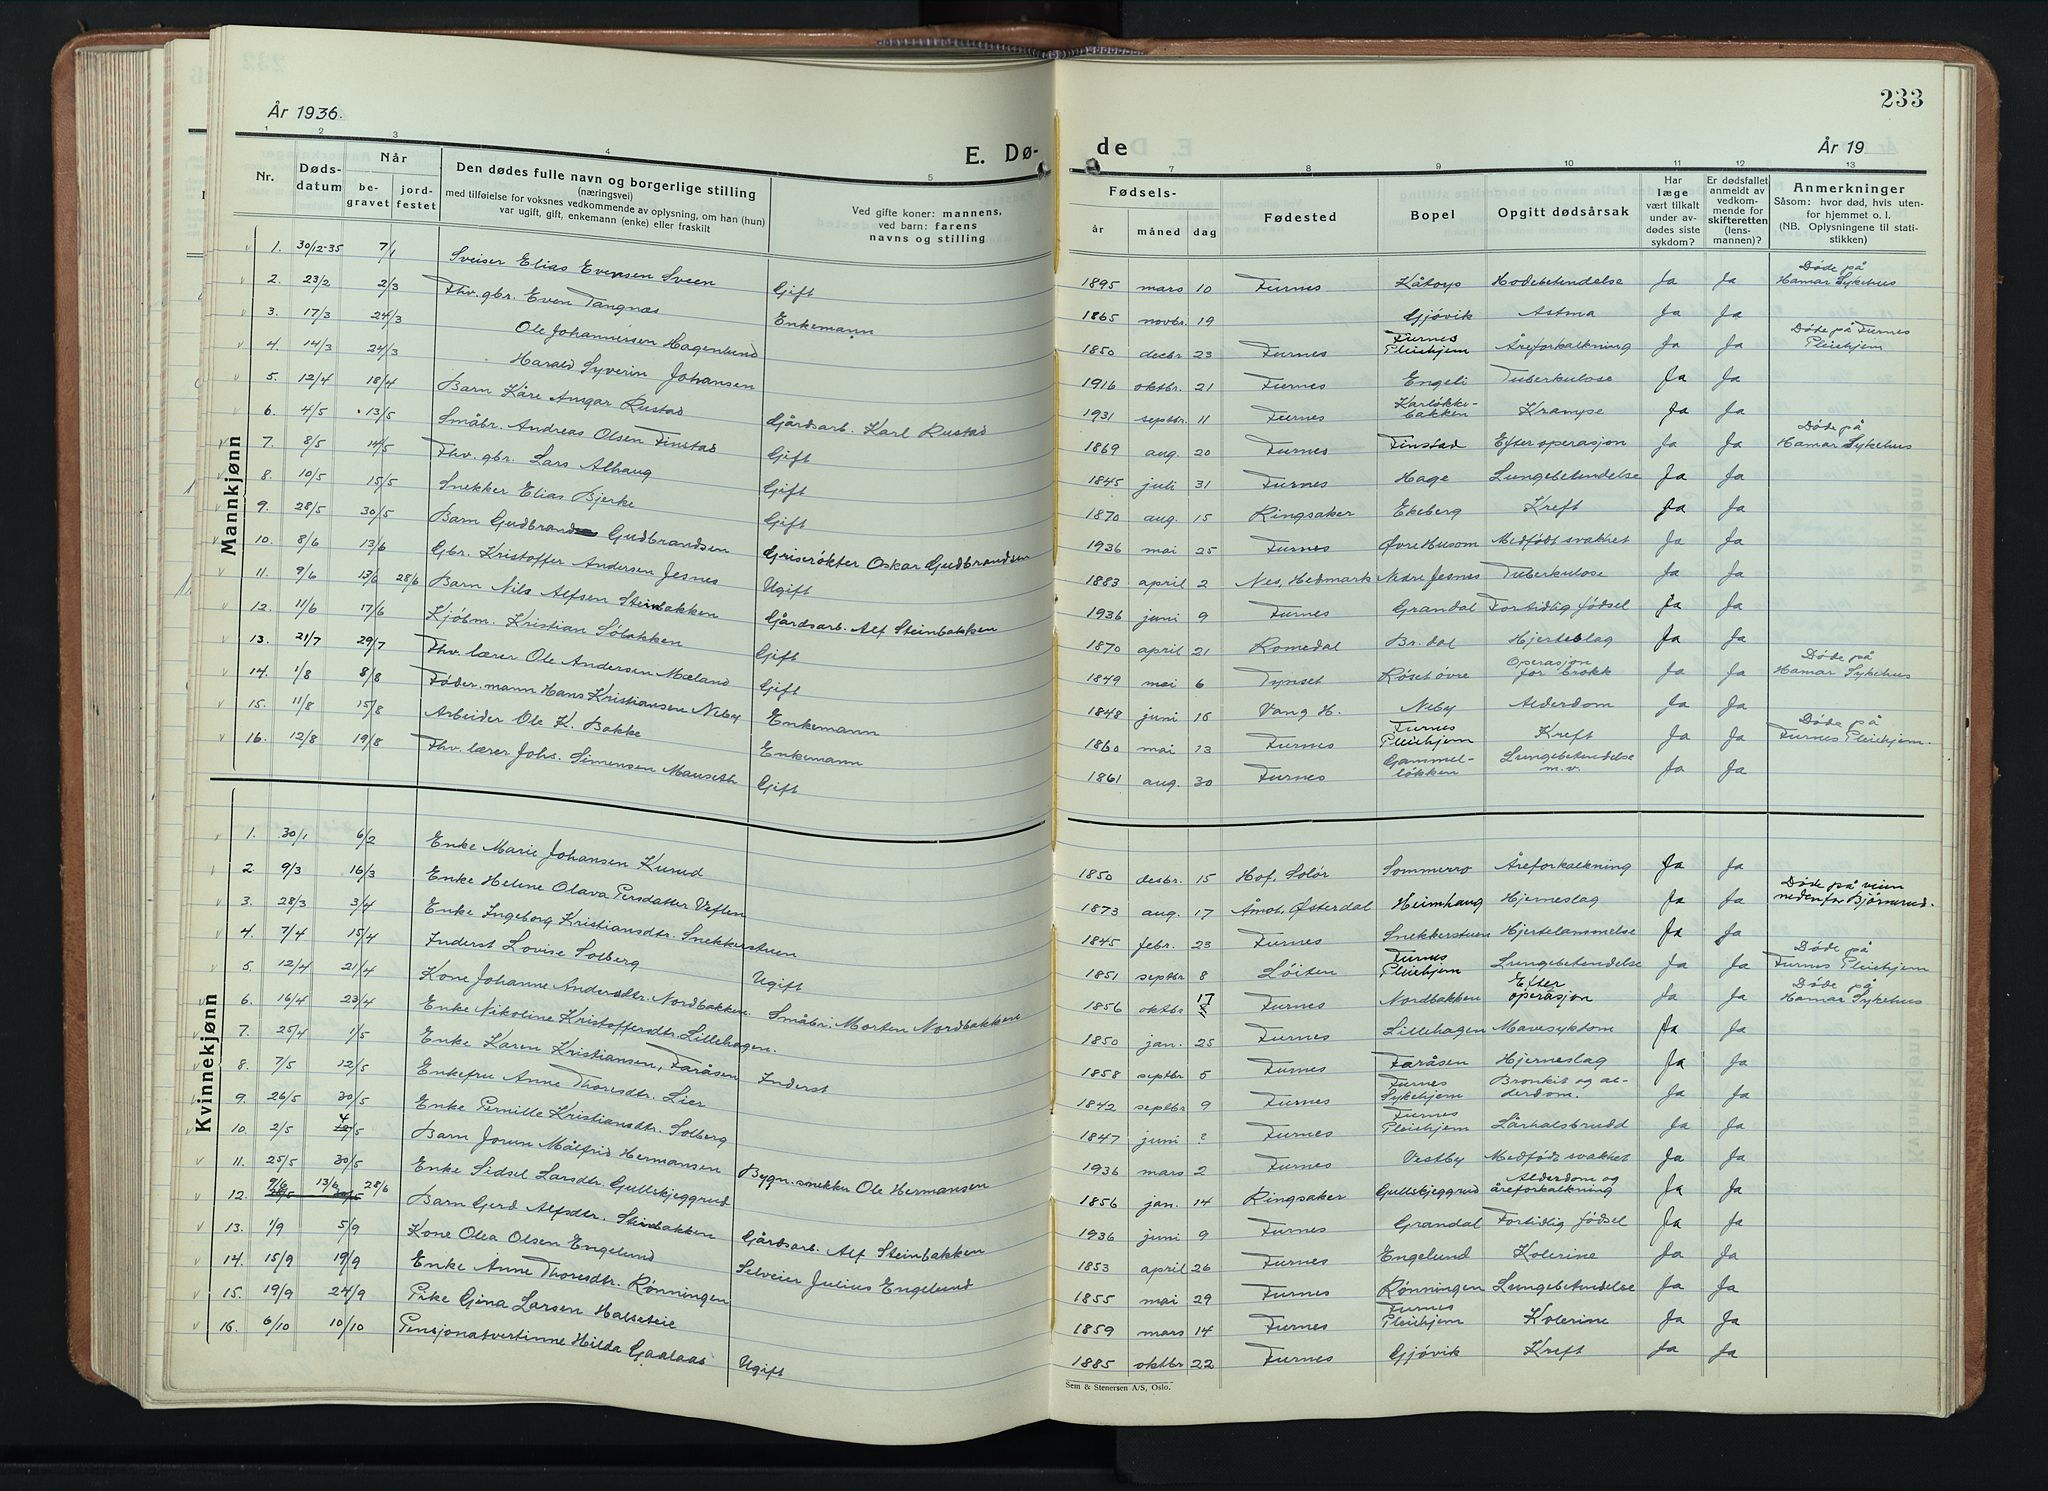 233
År 1936.
E. Dø-
de
År 19
1 2 3 4 5
7 8 9 10 11 12 13
Nr.
Døds-
datum
Når
be-
gravet
jord-
festet
Den dødes fulle navn og borgerlige stilling
(næringsvei)
med tilføielse for voksnes vedkommende av oplysning, om han (hun)
var ugift, gift, enkemann (enke) eller fraskilt
Ved gifte koner: mannens,
ved barn: farens
navns og stilling
Fødsels-
år måned dag
Fødested
Bopel
Opgitt dødsårsak
Har
læge
vært tilkalt
under av-
dødes siste
sykdom?
Er dødsfallet
anmeldt av
vedkom-
mende for
skifteretten
(lens-
mannen)?
Anmerkninger
Såsom: hvor død, hvis uten-
for hjemmet o. l.
(NB. Oplysningene til stati-
stikken)
Mannkjønn
1. 30/12-35 7/1 Sveiser Elias Evensen Sveen Gift 1895 mars 10 Furnes Kåtorp Hodebetendelse Ja Ja Døde på Hamar Sykehus
2. 23/2 2/3 Fhv. gbr. Even Tangnæs Enkemann 1865 novbr. 19 Gjøvik Astma Ja Ja
3. 17/3 24/3 Ole Johannessen Hagenlund 1850 decbr 23 Furnes Furnes Pleiehjem Åreforkalkning Ja Ja Døde på Furnes Pleiehjem
4. 14/3 24/3 Harald Syverin Johansen 1916 oktbr. 21 Furnes Engeli Tuberkulose Ja Ja
5. 12/4 18/4 Barn Kåre Ansgar Rustad Gårdsarb. Karl Rustad 1931 septbr. 11 Furnes Karløkke-bakken Krampe Ja Ja
6. 4/5 13/5 Småbr. Andreas Olsen Finstad Gift 1869 aug. 20 Furnes Finstad Efter operasjon Ja Ja Døde på Hamar Sykehus
7. 8/5 14/5 Fhv. gbr. Lars Alhaug Gift 1845 juli 31 Furnes Hage Lungebetendelse Ja Ja
8. 10/5 15/5 Snekker Elias Bjerke Gift 1870 aug. 15 Ringsaker Ekeberg Kreft Ja Ja
9. 28/5 30/5 Barn Gudbrand Gudbrandsen Griserøkter Oskar Gudbrandsen 1936 mai 25 Furnes Øvre Husom Medfødt svakhet Ja Ja
10. 8/6 13/6 Gbr. Kristoffer Andersen Jesnes Ugift 1883 april 2 Nes, Hedmark Nedre Jesnes Tuberkulose Ja Ja
11. 9/6 13/6 28/6 Barn Nils Alfsen Steinbakken Gårdsarb. Alf Steinbakken 1936 juni 9 Furnes Grandal Fortidlig fødsel Ja Ja
12. 11/6 17/6 Kjøbm. Kristian Solbakken Gift 1870 april 21 Romedal Br. dal Hjerteslag Ja Ja
13. 21/7 29/7 Fhv. lærer Ole Andersen Mæland Gift 1849 mai 6 Tynset Røset øvre Operasjon for brokk Ja Ja Døde på Hamar Sykehus
14. 1/8 8/8 Føder. mann Hans Kristiansen Neby Enkemann 1848 juni 16 Vang H. Neby Alderdom Ja Ja
15. 11/8 15/8 Arbeider Ole K. Bakke Enkemann 1860 mai 13 Furnes Furnes Pleiehjem Kreft Ja Ja Døde på Furnes Pleiehjem.
16. 12/8 19/8 Fhv. lærer Johs. Simensen Mauseth Gift 1861 aug. 30 Furnes Gammel-løkken Lungebetendelse m.v. Ja Ja
Kvinnekjønn
1. 30/1 6/2 Enke Marie Johansen Kurud 1850 desbr. 15 Hof, Solør Sommerro Åreforkalkning Ja Ja
2. 9/3 16/3 Enke Helene Olava Persdatter Veflen 1873 aug. 17 Åmot, Østerdal Heimhaug Hjerneslag Ja Ja Døde på veien nedenfor Bjørnerud.
3. 28/3 3/4 Enke Ingeborg Kristiansdtr. Snekkerstuen 1845 febr. 23 Furnes Snekkerstuen Hjertelammelse Ja Ja
4. 7/4 15/4 Inderst Lovise Solberg Ugift 1851 septbr 8 Løiten Furnes Pleiehjem Lungebetendelse Ja Ja Døde på Furnes Pleiehjem
5. 12/4 21/4 Kone Johanne Andersdtr. Nordbakken Småbr. Morten Nordbakken 1856 oktbr 17 Furnes Nordbakken Efter operasjon Ja Ja Døde på Hamar Sykehus
6. 16/4 23/4 Enke Nikoline Kristoffersdtr. Lillehagen. 1850 jan. 25 Furnes Lillehagen Mavesykdom Ja Ja
7. 25/4 1/5 Enke Karen Kristiansen, Faråsen Inderst 1858 septbr 5 Furnes Faråsen Hjerneslag Ja Ja
8. 7/5 12/5 Enkefru Anne Thoresdtr. Lier 1842 septbr 9 Furnes Furnes Sykehjem Bronkit og al-derdom. Ja Ja
9. 26/5 30/5 Enke Pernille Kristiansdtr. Solberg 1847 juni ? Furnes Furnes Pleiehjem Lårhalsbrudd Ja Ja
10. 2/5 4/5 Barn Jorun Målfrid Hermansen Bygn. snekker Ole Hermansen 1936 mars 2 Furnes Vestby Medfødt svakhet Ja Ja
11. 25/5 30/5 Enke Sidsel Larsdtr. Gullskjeggrud 1856 jan. 14 Ringsaker Gullskjeggrud Alderdom og åreforkalkning Ja Ja
12. 9/6 13/6 28/6 Barn Gerd Alfsdtr. Steinbakken Gårdsarb. Alf Steinbakken 1936 juni 9 Furnes Grandal Fortidlig fødsel Ja Ja
13. 1/9 5/9 Kone Olea Olsen Engelund Selveier Julius Engelund 1853 april 26 Furnes Engelund Kolerine Ja Ja
14. 15/9 19/9 Enke Anne Thoresdtr. Rønningen 1855 mai 29 Furnes Rønningen Lungebetendelse Ja Ja
15. 19/9 24/9 Pike Gina Larsen Halseteie 1859 mars 14 Furnes Furnes Pleiehjem Kolerine Ja Ja
16. 6/10 10/10 Pensjonatvertinne Hilda Gaalaas Ugift 1885 oktbr 22 Furnes Gjøvik Kreft Ja Ja
Sem & Stenersen A/S, Oslo.